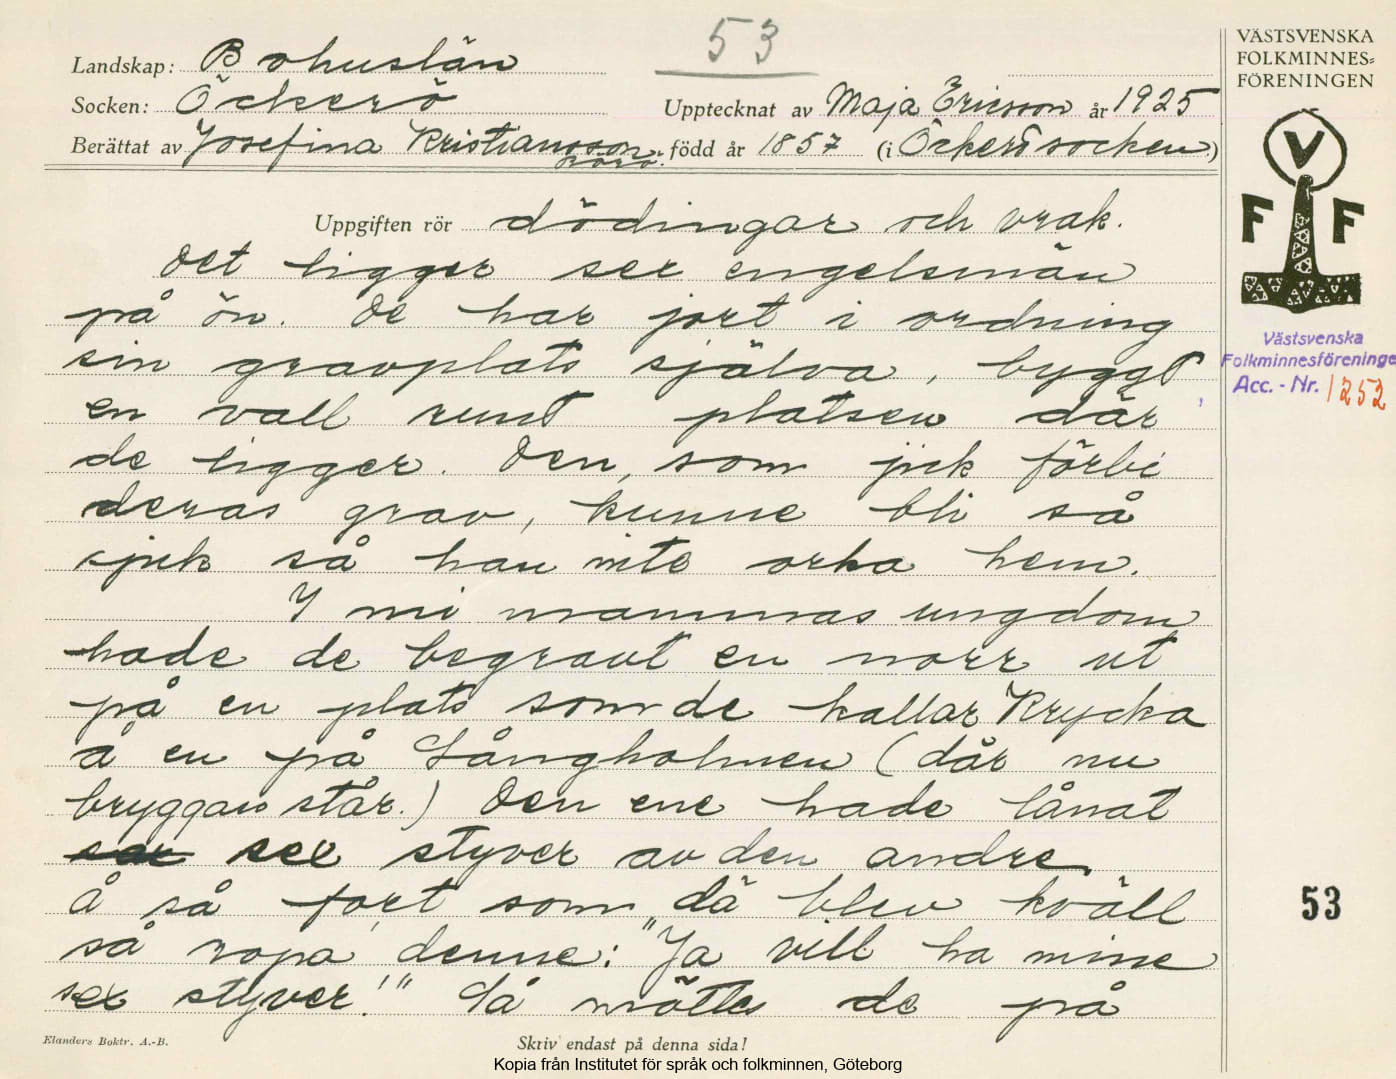 53
Landskap: Bohuslän
Socken: Öckerö
Upptecknat av Maja Ericsson år 1925
Berättat av Josefina Kristiansson
född år 1857 (i Öckerö socken)
VÄSTSVENSKA
FOLKMINNES=
FÖRENINGEN
V
F F
Västsvenska
Folkminnesföreninge
Acc. - Nr. 1252
Uppgiften rör dödingar och vrak.
Det ligger sex engelsmän
på ön. De har jort i ordning
sin gravplats själva, byggt
en vall runt platsen där
de ligger. Den, som jick förbi
deras grav, kunne bli så
sjuk så han inte orka hem.
I mi mammas ungdom
hade de begravt en norr ut
på en plats som de kallar Krycka
å en på Långholmen (där nu
bryggan står.) Den ene hade lånat
sex styver av den andre.
Å så fort som dä blev kväll
så ropa denne: "Ja vill ha mine
sex styver!" Så mötts de på
53
Elanders Boktr. A.-B.
Skriv endast på denna sida!
Kopia från Institutet för språk och folkminnen, Göteborg